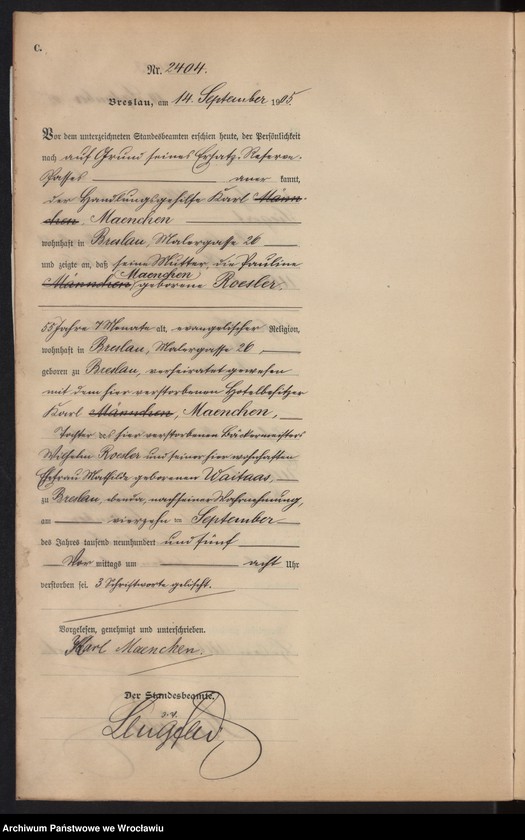 C.
Nr. 2404.
Breslau, am 14. September 1905.
Vor dem unterzeichneten Standesbeamten erschien heute, der Persönlichkeit
nach auf Grund seines Ersatz-Reserve-
Passes anerkannt,
der Handlungsgehilfe Karl Männ-
chen, Maenchen
wohnhaft in Breslau, Malergasse 26
und zeigte an, daß seine Mutter, die Pauline
Maenchen
Männchen, geborene Roesler.
55 Jahre 7 Monate alt, evangelischer Religion,
wohnhaft in Breslau, Malergasse 26,
geboren zu Breslau, verheiratet gewesen
mit dem hier verstorbenen Hotelbesitzer
Karl Männchen, Maenchen,
Tochter des hier verstorbenen Bäckermeisters
Wilhelm Roesler und seiner hier wohnhaften
Ehefrau Mathilde geborenen Waitaas,
zu Breslau, ebenda, nach seiner Wahrnehmung,
am vierzehn ten September
des Jahres tausend neunhundert und fünf
Vor mittags um acht Uhr
verstorben sei. 3 Schriftworte gelöscht.
Vorgelesen, genehmigt und unterschrieben.
Karl Maenchen.
Der Standesbeamte.
Archiwum Państwowe we Wrocławiu